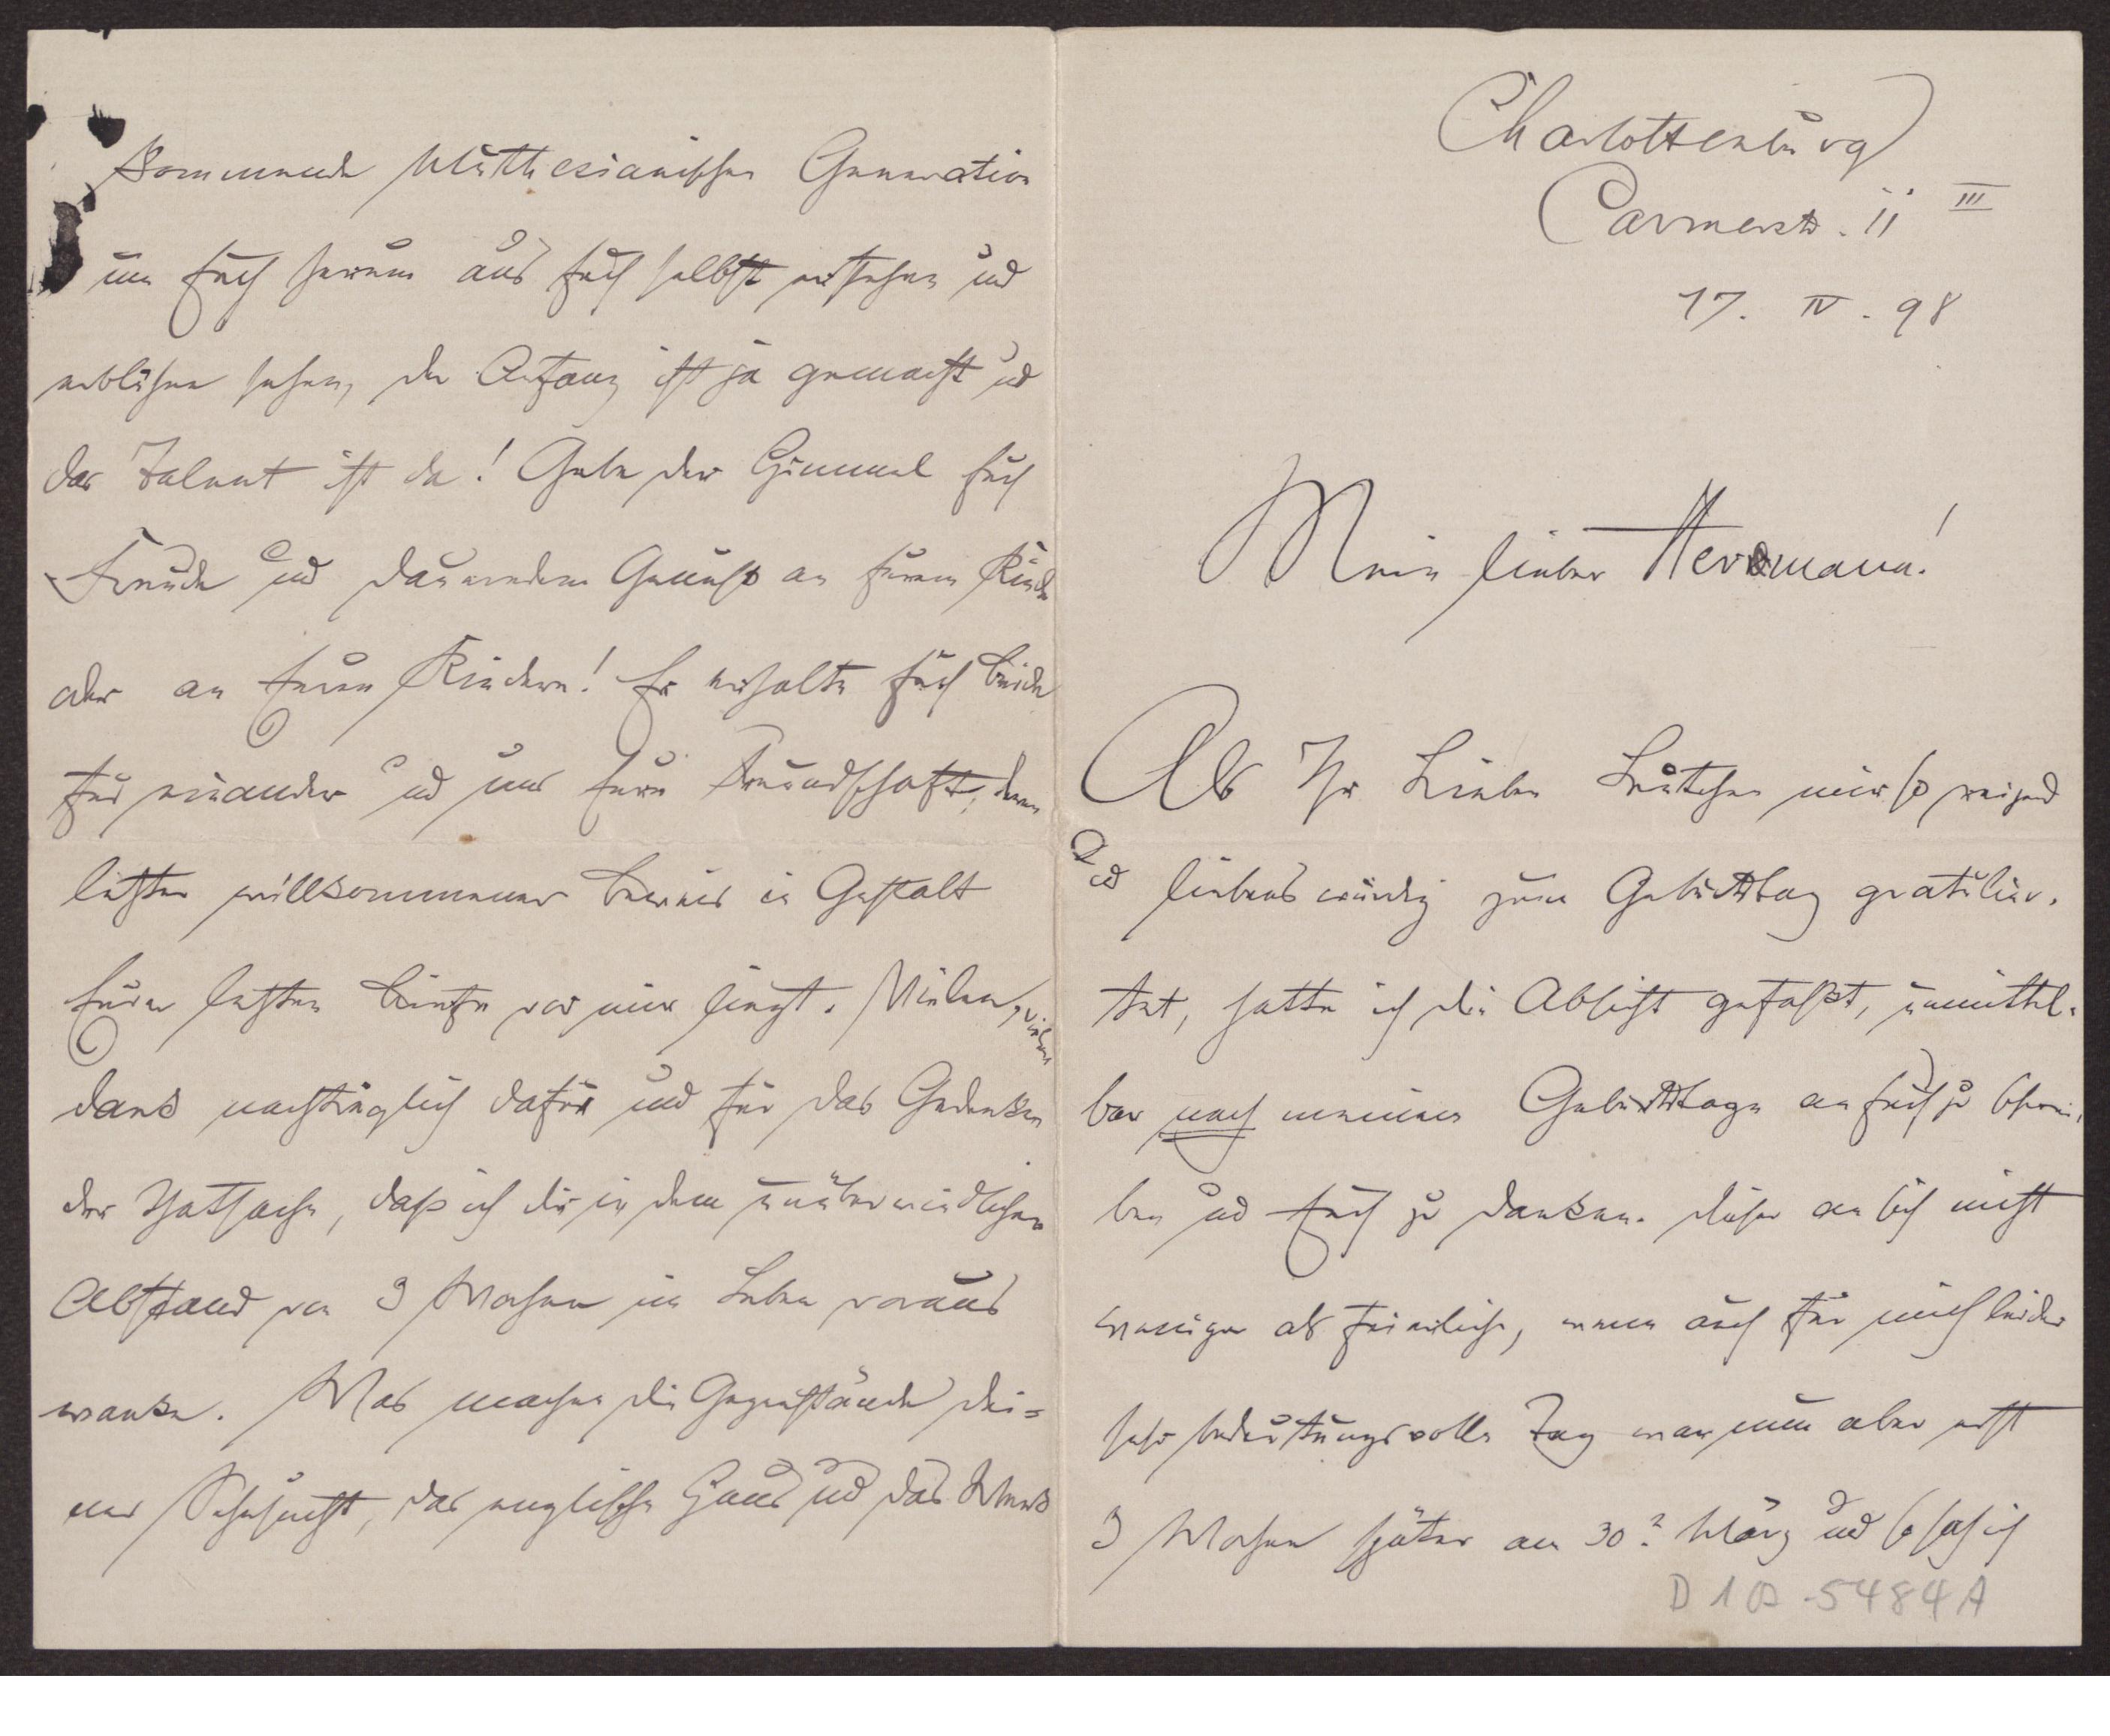 Charlottenburg
Carmerstr. 11 III
17. IV. 98
Mein lieber Hermann!
Als Ihr Lieben Leutchen mir so reizend
und liebenswürdig zum Geburtstag gratulier-
tet, hatte ich die Absicht gefaßt, unmittel-
bar nach meinem Geburtstage an Euch zu schrei-
ben und Euch zu danken. Dieser an sich nicht
weniger als feierliche, wenn auch für mich leider
sehr bedeutungsvolle Tag war nun aber erst
3 Wochen später am 30? März und so sah ich
D 102-5484 A
kommende Muthesianische Generation
um Euch herum aus Euch selbst entstehen und
erblühen sehen, der Anfang ist ja gemacht und
das Talent ist da! Gebe der Himmel Euch
Freude und dauernden Genuß an Eurem Kinde
oder an Euren Kindern! Er erhalte Euch beide
für einander und uns Eure Freundschaft, deren
letzter willkommener Beweis in Gestalt
Eurer letzten Briefe vor mir liegt. Vielen, vielen
Dank nachträglich dafür und für das Gedenken
der Thatsache, daß ich dir in dem unüberwindlichen
Abstand von 3 Wochen im Leben voraus
wanke. Was machen die Gegenstände dei=
ner Sehnsucht, das englische Haus und das Werk